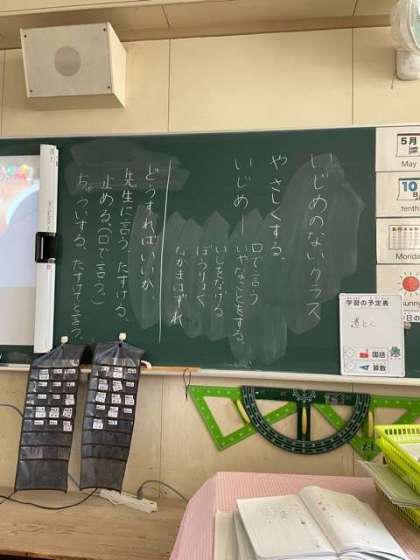 いじめのないクラス
やさしくする。
いじめー
口で言う
いやなことをする。
いしをなげる
ぼうりょく
なかまはずれ
どうすればいいか
先生に言う。たすける。
止める(口で言う。)
ちゅういする。たすけてと言う。
5月
May
10日
tenth
Monday
sunny
学習の予定表
道とく
国語
算数